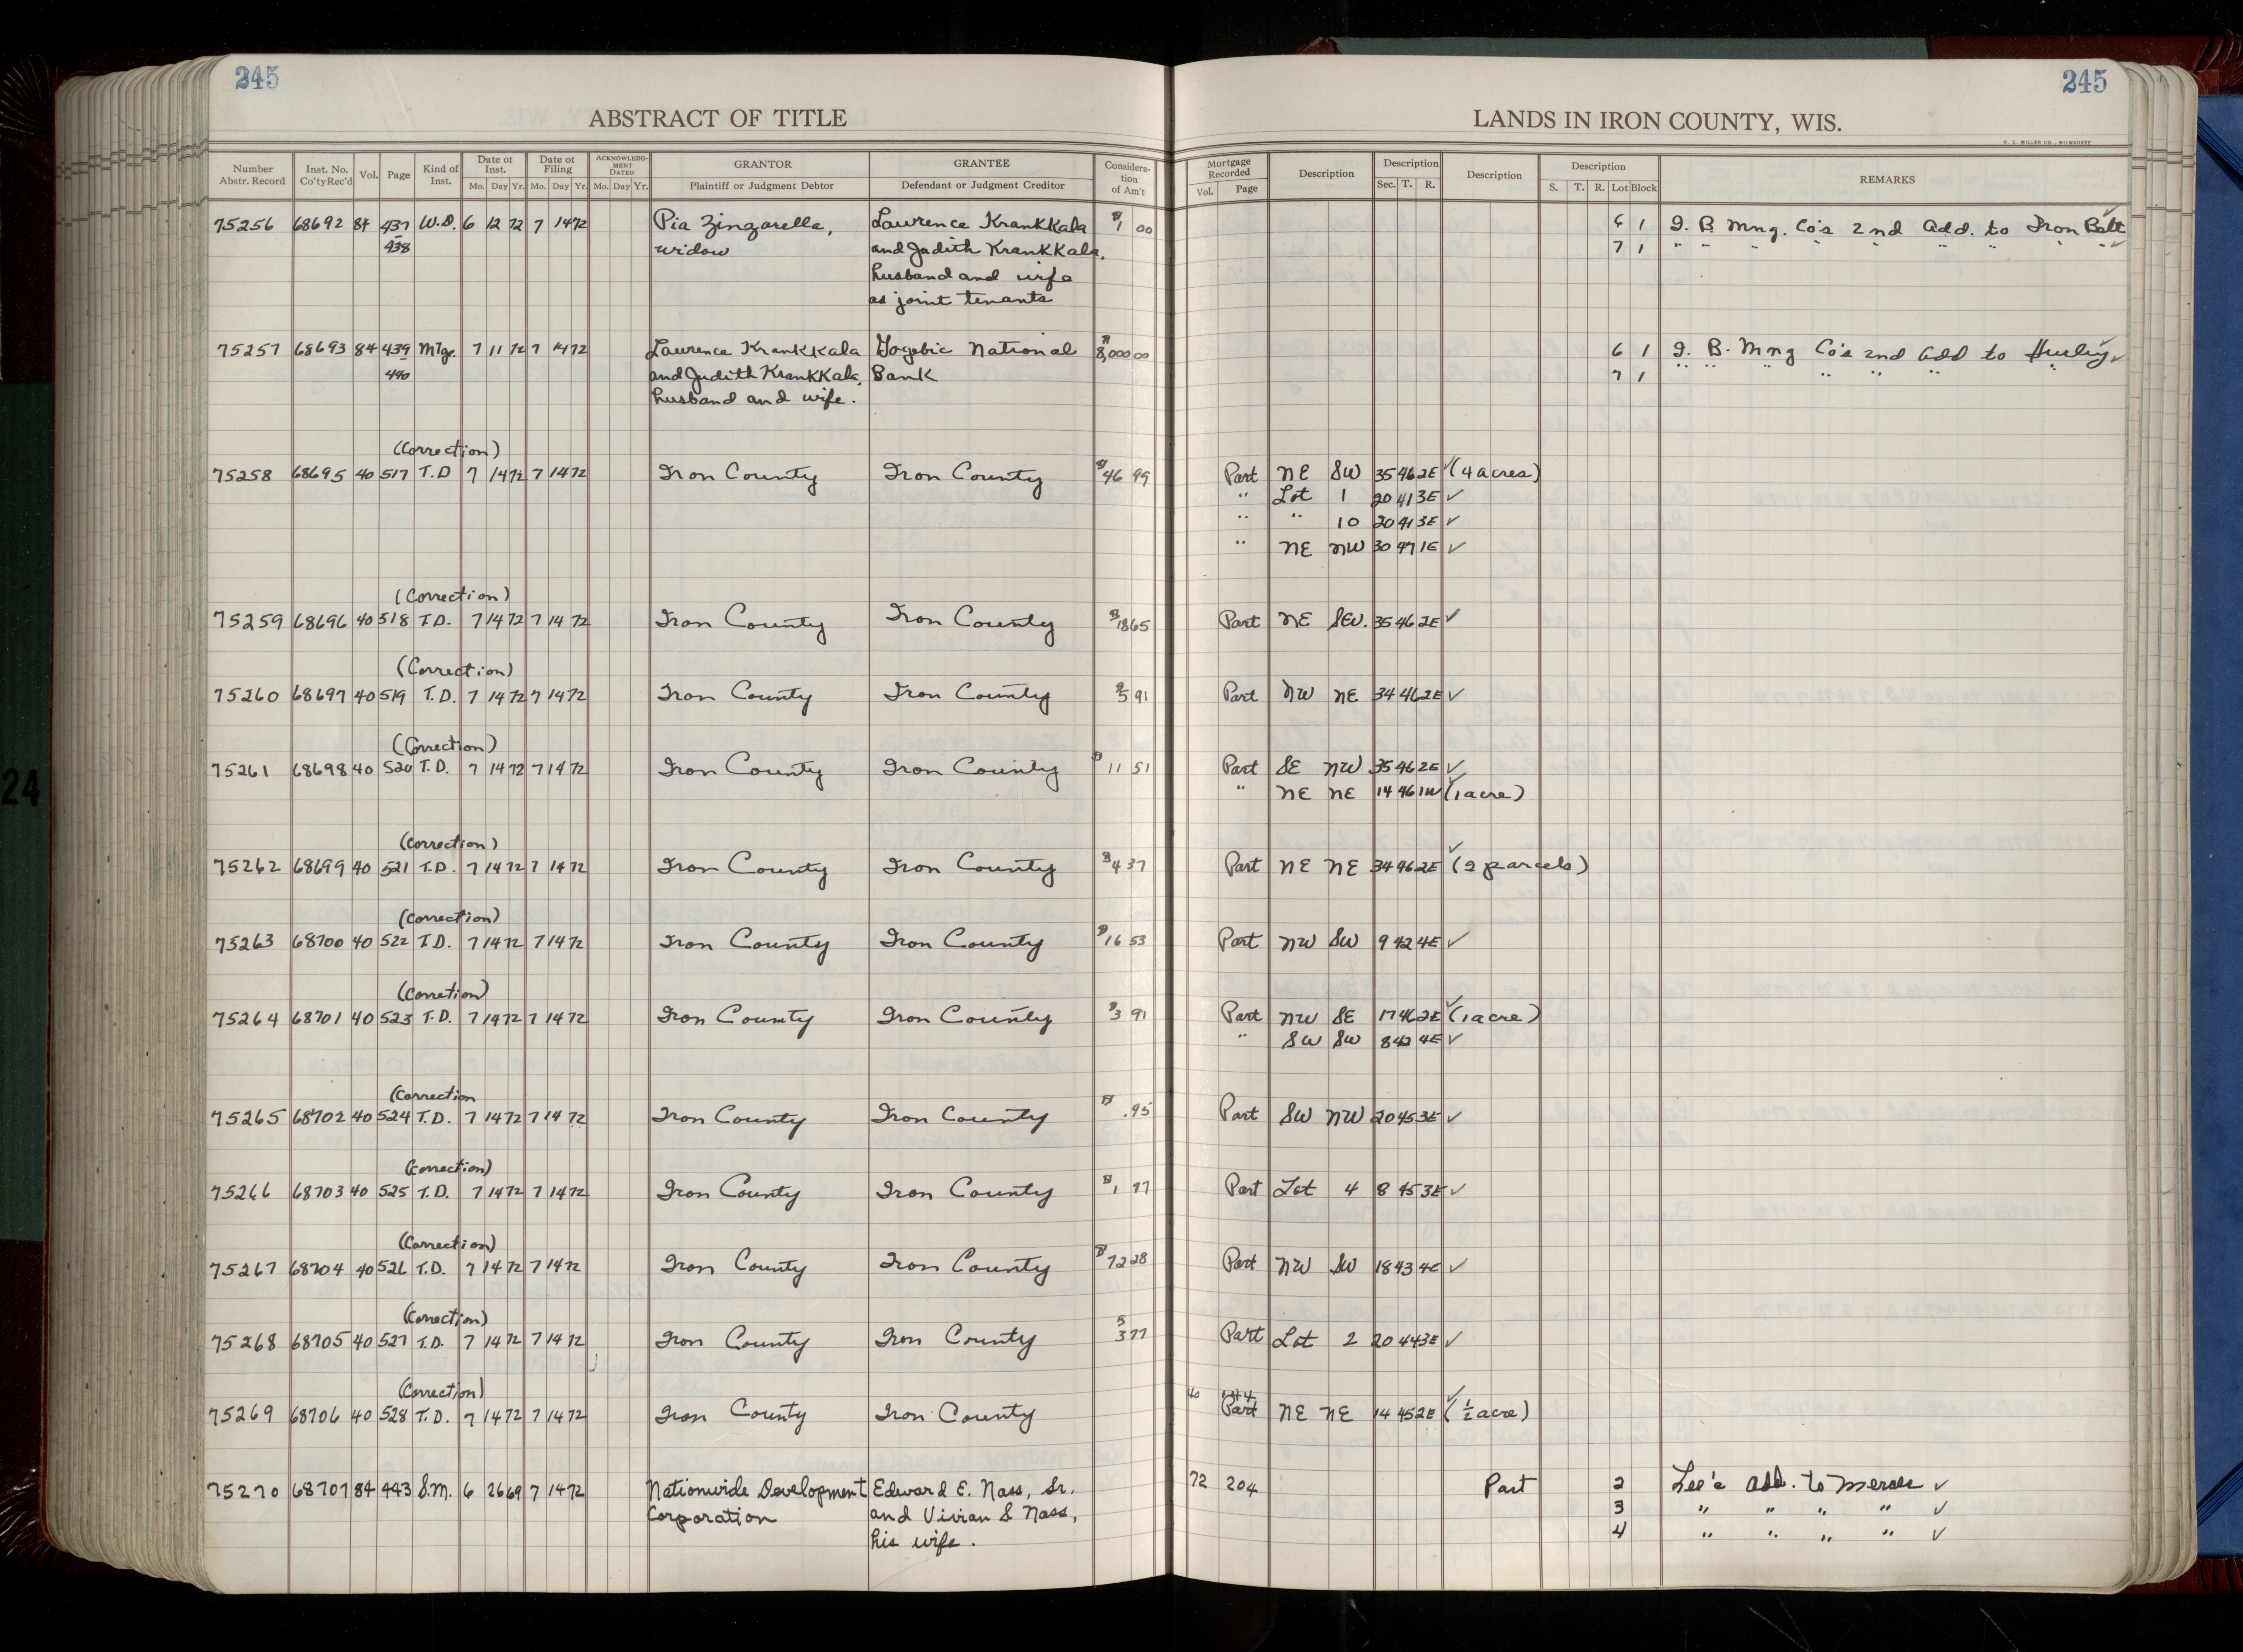 245
245
ABSTRACT OF TITLE
LANDS IN IRON COUNTY, WIS.
H. C. MILLER CO., MILWAUKEE
Number Abstr. Record Inst. No. Co'tyRec'd Vol. Page Kind of Inst. Date of Inst. Mo. Day Yr. Date of Filing Mo. Day Yr. ACKNOWLEDGMENT DATED Mo. Day Yr. GRANTOR Plaintiff or Judgment Debtor GRANTEE Defendant or Judgment Creditor Consideration of Am't Mortgage Recorded Vol. Page Description Description Sec. T. R. Description Description S. T. R. Lot Block REMARKS
75256 68692 84 437 W.D. 6 12 72 7 14 72 Pia Zinzarella, Lawrence Krankkala $1 00 6 1 I. B. Mng. Co's 2nd Add. to Iron Belt ✓
438 widow and Judith Krankkala, 7 1 " " " " " " " " ✓
husband and wife
as joint tenants
75257 68693 84 439 Mtg. 7 11 72 7 14 72 Lawrence Krankkala Gogebic National $8,000 00 6 1 I. B. Mng Co's 2nd Add to Hurley ✓
440 and Judith Krankkala, Bank 7 1 " " " " " " "
husband and wife.
(Correction)
75258 68695 40 517 T.D 7 14 72 7 14 72 Iron County Iron County $46 99 Part NE SW 35 46 2E ✓ (4 acres)
" Lot 1 20 41 3E ✓
" " 10 20 41 3E ✓
" NE NW 30 47 1E ✓
(Correction)
75259 68696 40 518 T.D. 7 14 72 7 14 72 Iron County Iron County $18 65 Part NE SW. 35 46 2E ✓
(Correction)
75260 68697 40 519 T.D. 7 14 72 7 14 72 Iron County Iron County $5 91 Part NW NE 34 46 2E ✓
(Correction)
75261 68698 40 520 T.D. 7 14 72 7 14 72 Iron County Iron County $11 51 Part SE NW 35 46 2E ✓
" NE NE 14 46 1W ✓ (1 acre)
(Correction)
75262 68699 40 521 T.D. 7 14 72 7 14 72 Iron County Iron County $4 37 Part NE NE 34 46 2E ✓ (2 parcels)
(Correction)
75263 68700 40 522 T.D. 7 14 72 7 14 72 Iron County Iron County $16 53 Part NW SW 9 42 4E ✓
(Corretion)
75264 68701 40 523 T.D. 7 14 72 7 14 72 Iron County Iron County $3 91 Part NW SE 17 46 2E ✓ (1 acre)
" SW SW 8 42 4E ✓
(Correction
75265 68702 40 524 T.D. 7 14 72 7 14 72 Iron County Iron County $ .95 Part SW NW 20 45 3E ✓
(Correction)
75266 68703 40 525 T.D. 7 14 72 7 14 72 Iron County Iron County $1 77 Part Lot 4 8 45 3E ✓
(Correction)
75267 68704 40 526 T.D. 7 14 72 7 14 72 Iron County Iron County $72 28 Part NW SW 18 43 4E ✓
(Correction)
75268 68705 40 527 T.D. 7 14 72 7 14 72 Iron County Iron County $3 77 Part Lot 2 20 44 3E ✓
(Correction)
75269 68706 40 528 T.D. 7 14 72 7 14 72 Iron County Iron County 40 Part NE NE 14 45 2E ✓ (½ acre)
75270 68707 84 443 S.M. 6 26 69 7 14 72 Nationwide Development Edward E. Nass, Sr. 72 204 Part 2 Lee's Add. to Mercer ✓
Corporation and Vivian S Nass, 3 " " " " ✓
his wife. 4 " " " " ✓
24